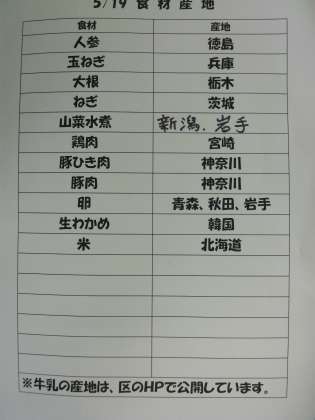 5/19 食材産地
食材 産地
人参 徳島
玉ねぎ 兵庫
大根 栃木
ねぎ 茨城
山菜水煮 新潟、岩手
鶏肉 宮崎
豚ひき肉 神奈川
豚肉 神奈川
卵 青森、秋田、岩手
生わかめ 韓国
米 北海道
※牛乳の産地は、区のHPで公開しています。